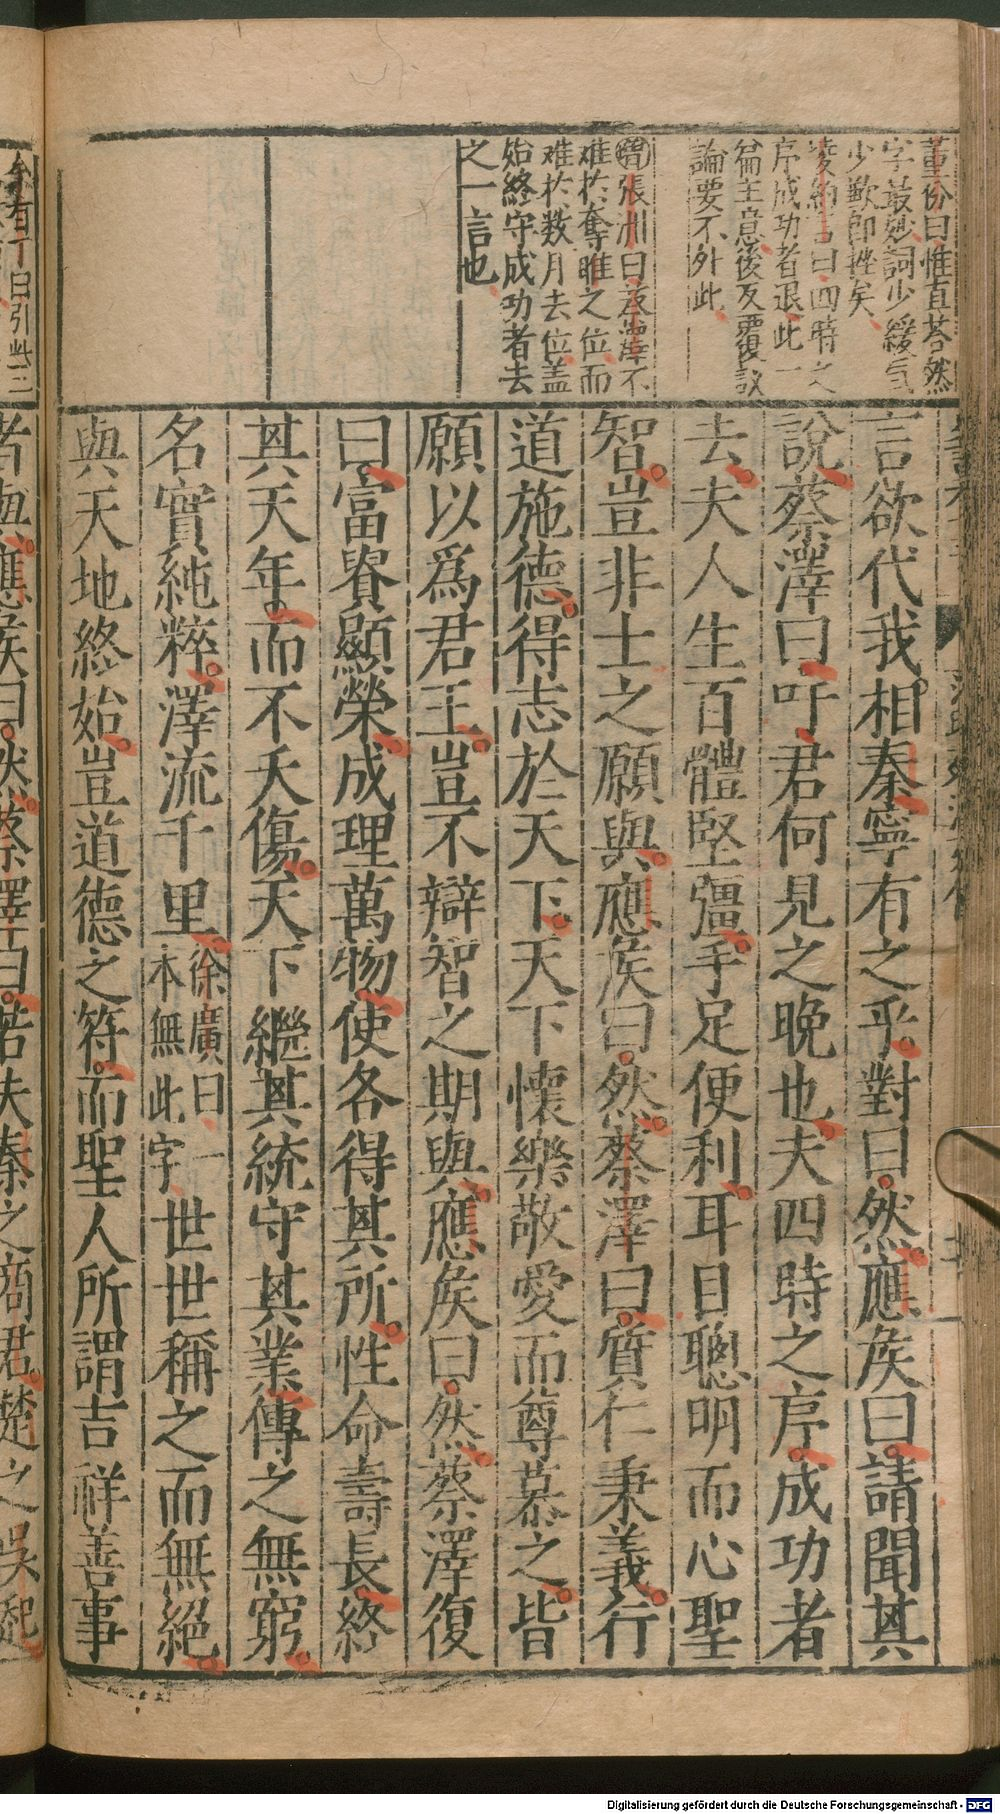 董份曰惟直荅然
字最妙詞少緩氣
少歉即挫矣
凌約言曰四時之
序成功者退此一
篇主意後反覆議
論要不外此
張洲曰蔡澤不
难於奪睢之位而
难於数月去位盖
始終守成功者去
之一言也
言欲代我相秦寧有之乎對曰然應侯曰請聞其
說蔡澤曰吁君何見之晚也夫四時之序成功者
去夫人生百體堅彊手足便利耳目聰明而心聖
智豈非士之願與應侯曰然蔡澤曰質仁秉義行
道施德得志於天下天下懷樂敬愛而尊慕之皆
願以爲君王豈不辯智之期與應侯曰然蔡澤復
曰富貴顯榮成理萬物使各得其所性命壽長終
其天年而不夭傷天下繼其統守其業傳之無窮
名實純粹澤流千里徐廣曰一本無此字世世稱之而無絕
與天地終始豈道德之符而聖人所謂吉祥善事
者與應侯曰然蔡澤曰若夫秦之商君楚之吳起
Digitalisierung gefördert durch die Deutsche Forschungsgemeinschaft - DFG